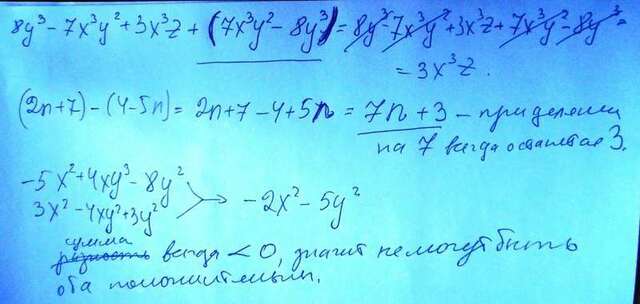 8y³ - 7x³y² + 3x³z + (7x³y² - 8y³) = 8y³ - 7x³y² + 3x³z + 7x³y² - 8y³ =
= 3x³z.
(2n+7) - (4-5n) = 2n+7-4+5n = 7n+3 - при делении
на 7 всегда остаётся 3.
-5x² + 4xy³ - 8y²
3x² - 4xy² + 3y²
→ -2x² - 5y²
сумма
разность всегда < 0, значит не могут быть
оба положительными.